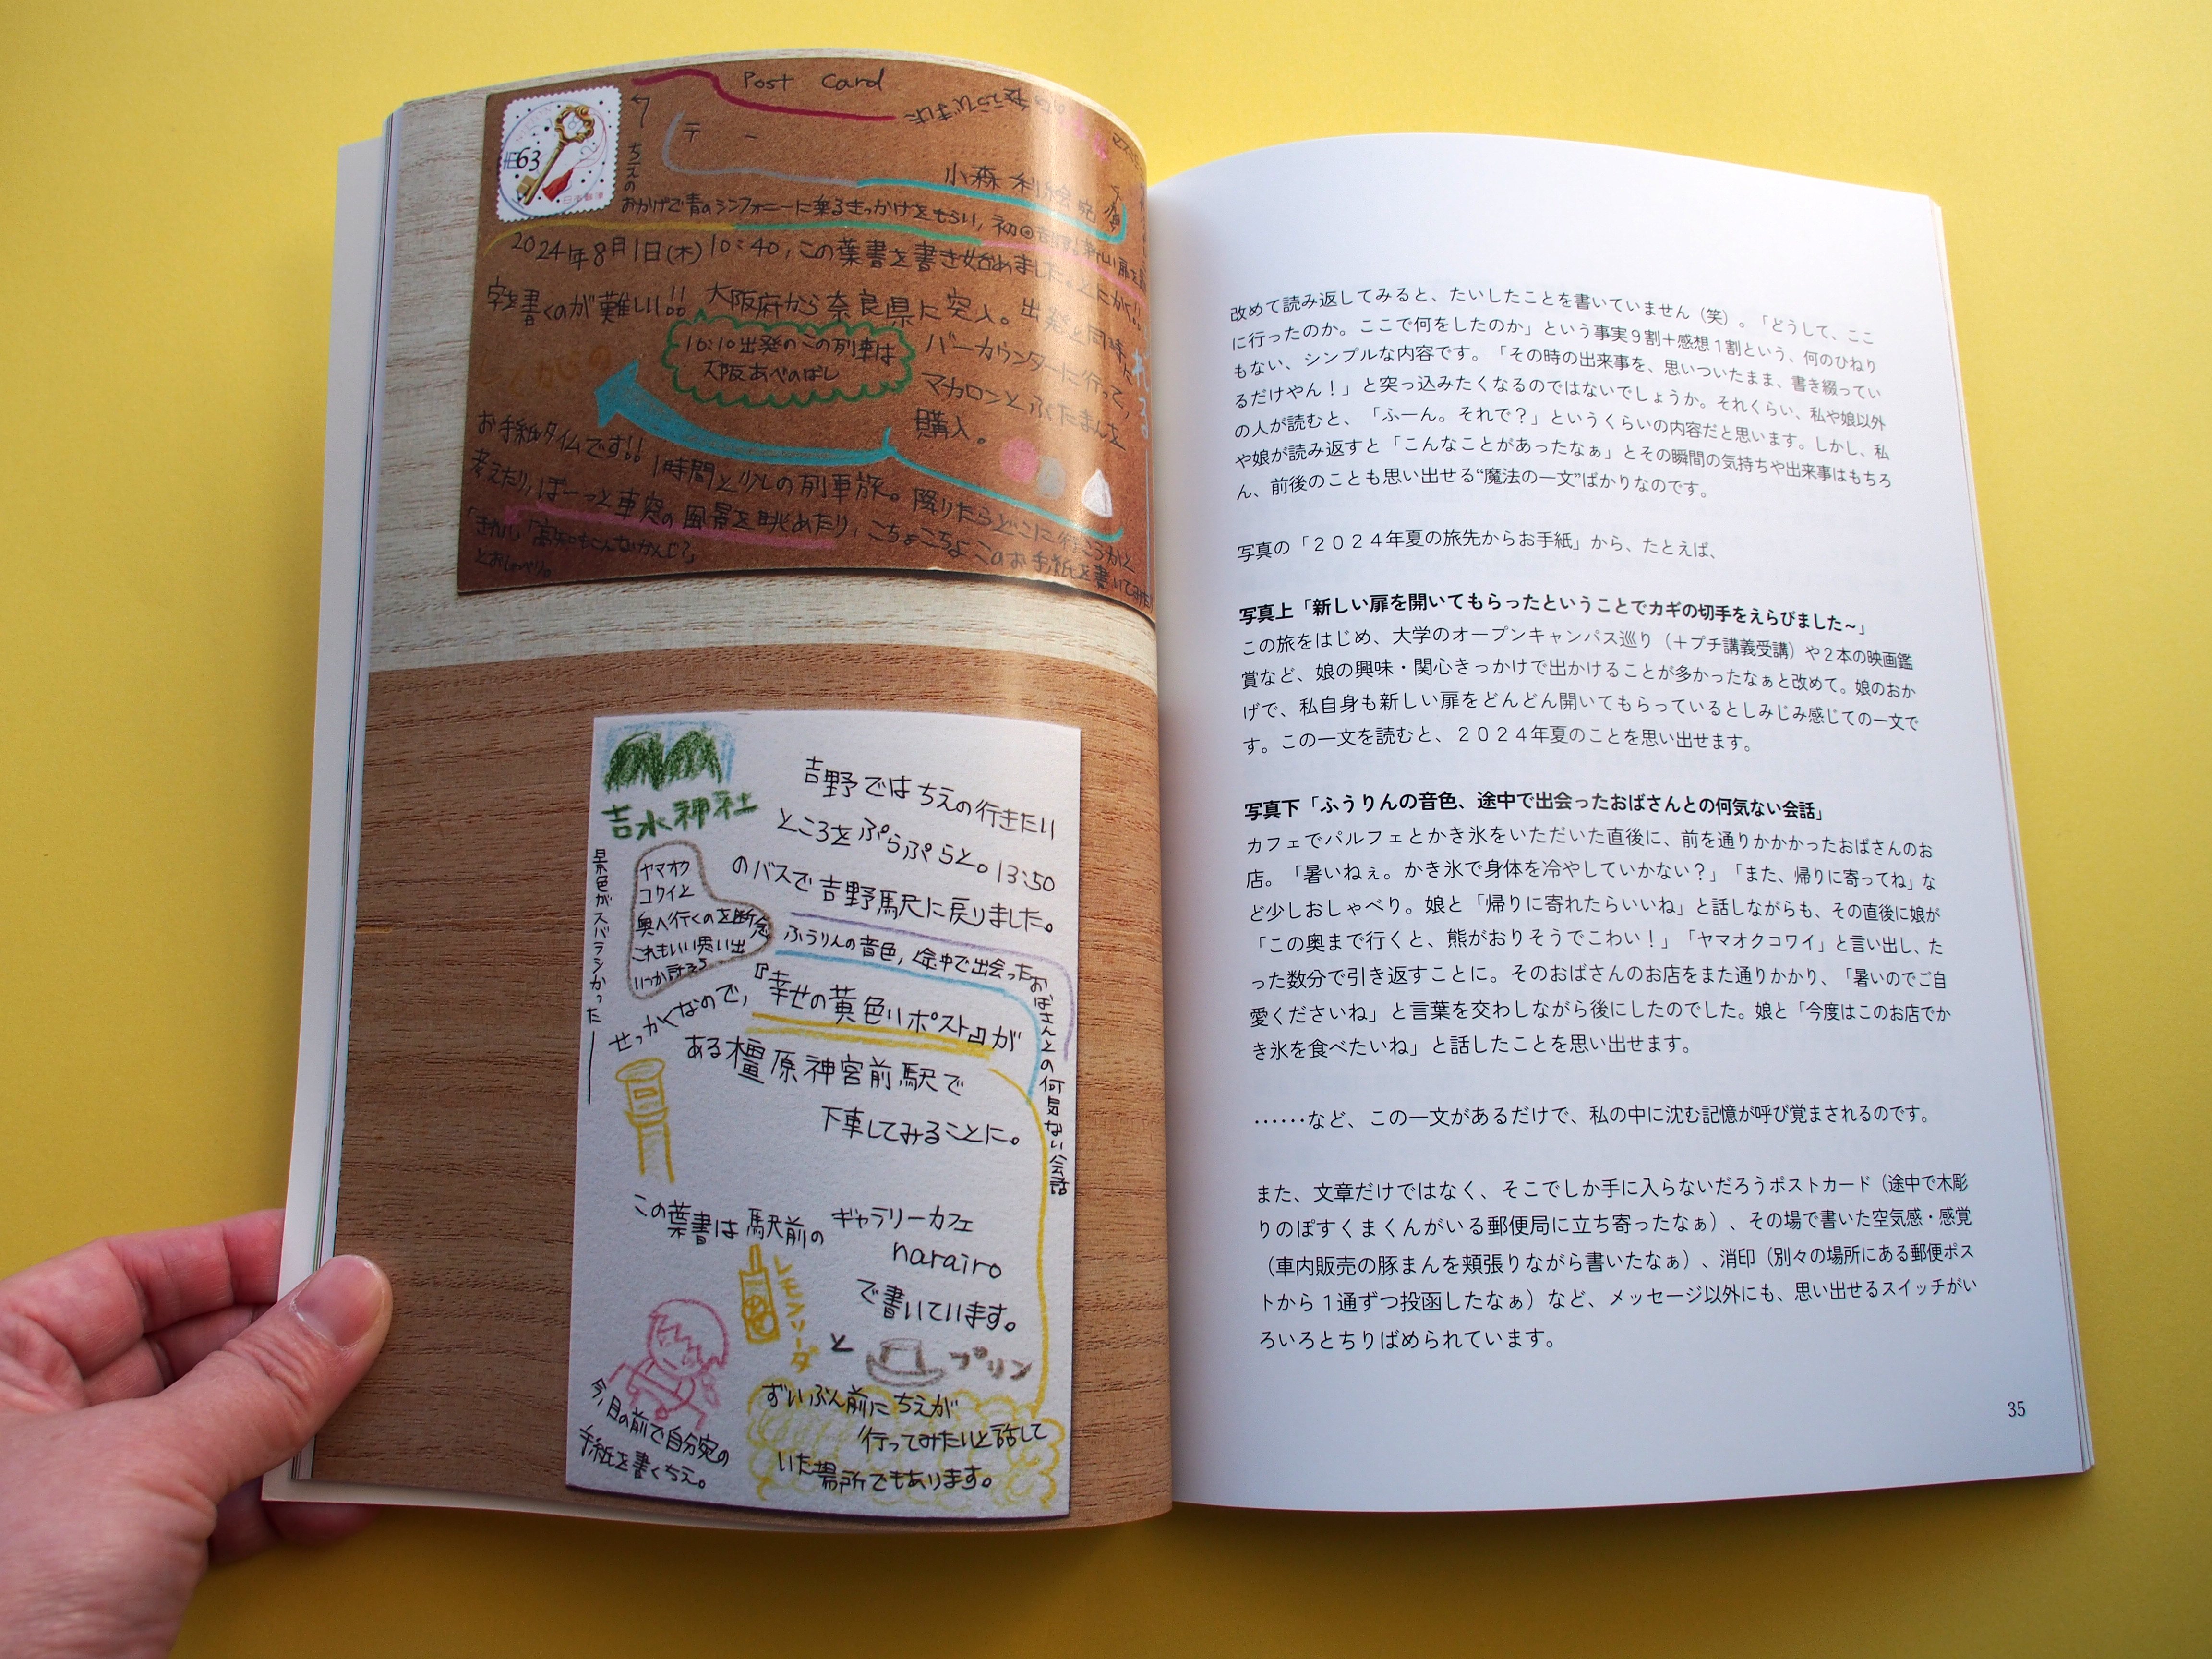 Post Card
〒 ー
63
日本郵便
小森 利絵 宛
ちえの
おかげで青のシンフォニーに乗るきっかけをもらい,初回
2024年8月1日(木)10:40,この葉書を書き始めました。とにかく!!
字を書くのが難しい!!大阪府から奈良県に突入。出発と同時に
バーカウンターに行って,
マカロンとぶたまんを
購入。
10:10出発のこの列車は
大阪あべのばし
お手紙タイムです!!1時間と少しの列車旅。降りたらどこに行こうかと
考えたり,ぼーっと車窓の風景を眺めたり,こちょこちょこのお手紙を書いてみたり
「きれい」「高知もこんなかんじ?」
とおしゃべり。
吉水神社
景色がスバラシかった
ヤマオク
コワイと
奥へ行くのを断念
これもいい思い出
いつか訪ろう
吉野ではちえの行きたい
ところをぷらぷらと。13:50
のバスで吉野駅に戻りました。
ふうりんの音色,途中で出会ったおばさんとの何気ない会話
せっかくなので,『幸せの黄色いポスト』が
ある橿原神宮前駅で
下車してみることに。
この葉書は駅前のギャラリーカフェ
narairo
で書いています。
レモンソーダ
と
プリン
今,目の前で自分宛の
手紙を書くちえ。
ずいぶん前にちえが
行ってみたいと話して
いた場所でもあります。
改めて読み返してみると、たいしたことを書いていません（笑）。「どうして、ここ
に行ったのか。ここで何をしたのか」という事実９割＋感想１割という、何のひねり
もない、シンプルな内容です。「その時の出来事を、思いついたまま、書き綴ってい
るだけやん！」と突っ込みたくなるのではないでしょうか。それくらい、私や娘以外
の人が読むと、「ふーん。それで？」というくらいの内容だと思います。しかし、私
や娘が読み返すと「こんなことがあったなぁ」とその瞬間の気持ちや出来事はもちろ
ん、前後のことも思い出せる“魔法の一文”ばかりなのです。
写真の「２０２４年夏の旅先からお手紙」から、たとえば、
写真上「新しい扉を開いてもらったということでカギの切手をえらびました～」
この旅をはじめ、大学のオープンキャンパス巡り（＋プチ講義受講）や２本の映画鑑
賞など、娘の興味・関心きっかけで出かけることが多かったなぁと改めて。娘のおか
げで、私自身も新しい扉をどんどん開いてもらっているとしみじみ感じての一文で
す。この一文を読むと、２０２４年夏のことを思い出せます。
写真下「ふうりんの音色、途中で出会ったおばさんとの何気ない会話」
カフェでパルフェとかき氷をいただいた直後に、前を通りかかかったおばさんのお
店。「暑いねぇ。かき氷で身体を冷やしていかない？」「また、帰りに寄ってね」な
ど少しおしゃべり。娘と「帰りに寄れたらいいね」と話しながらも、その直後に娘が
「この奥まで行くと、熊がおりそうでこわい！」「ヤマオクコワイ」と言い出し、た
った数分で引き返すことに。そのおばさんのお店をまた通りかかり、「暑いのでご自
愛くださいね」と言葉を交わしながら後にしたのでした。娘と「今度はこのお店でか
き氷を食べたいね」と話したことを思い出せます。
……など、この一文があるだけで、私の中に沈む記憶が呼び覚まされるのです。
また、文章だけではなく、そこでしか手に入らないだろうポストカード（途中で木彫
りのぽすくまくんがいる郵便局に立ち寄ったなぁ）、その場で書いた空気感・感覚
（車内販売の豚まんを頬張りながら書いたなぁ）、消印（別々の場所にある郵便ポス
トから１通ずつ投函したなぁ）など、メッセージ以外にも、思い出せるスイッチがい
ろいろとちりばめられています。
35